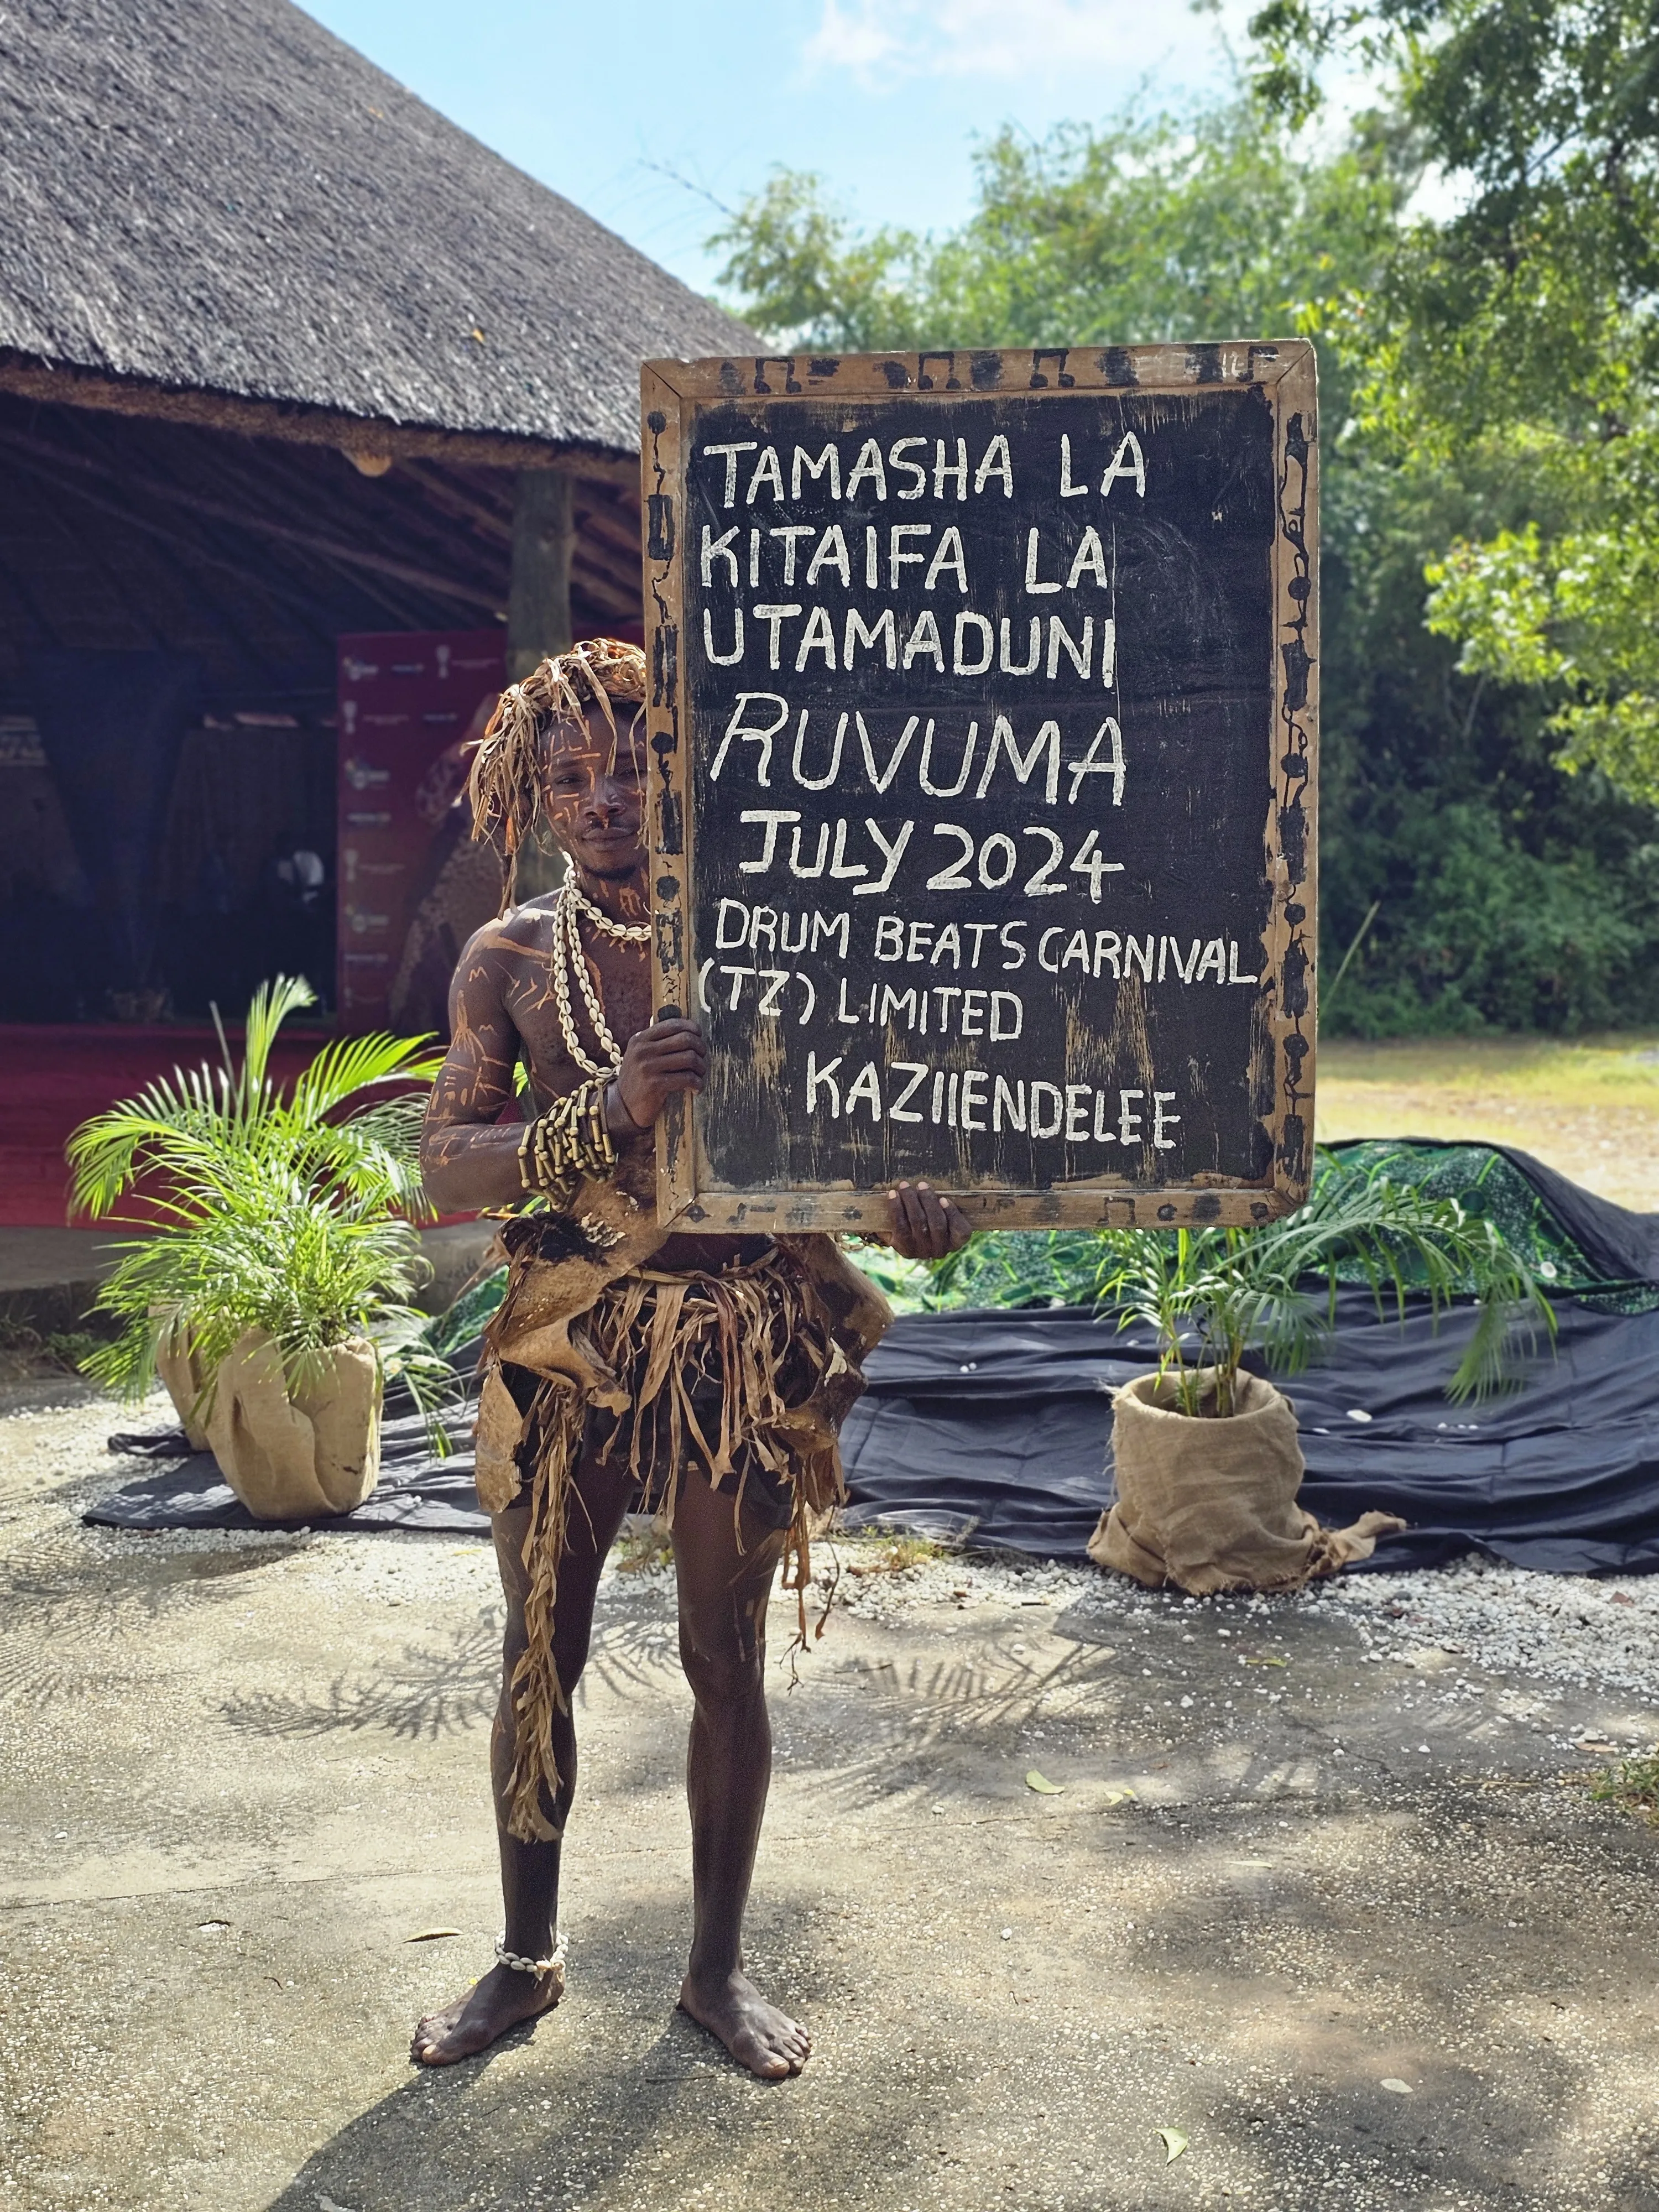 TAMASHA LA
KITAIFA LA
UTAMADUNI
RUVUMA
JULY 2024
DRUM BEATS CARNIVAL
(TZ) LIMITED
KAZIIENDELEE